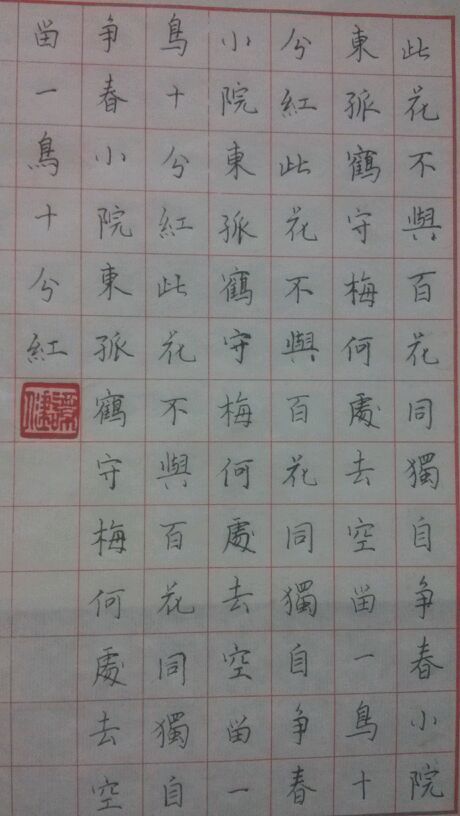 此花不與百花同獨自争春小院
東孤鶴守梅何處去空留一鳥十
分紅此花不與百花同獨自争春
小院東孤鶴守梅何處去空留一
鳥十分紅此花不與百花同獨自
争春小院東孤鶴守梅何處去空
留一鳥十分紅